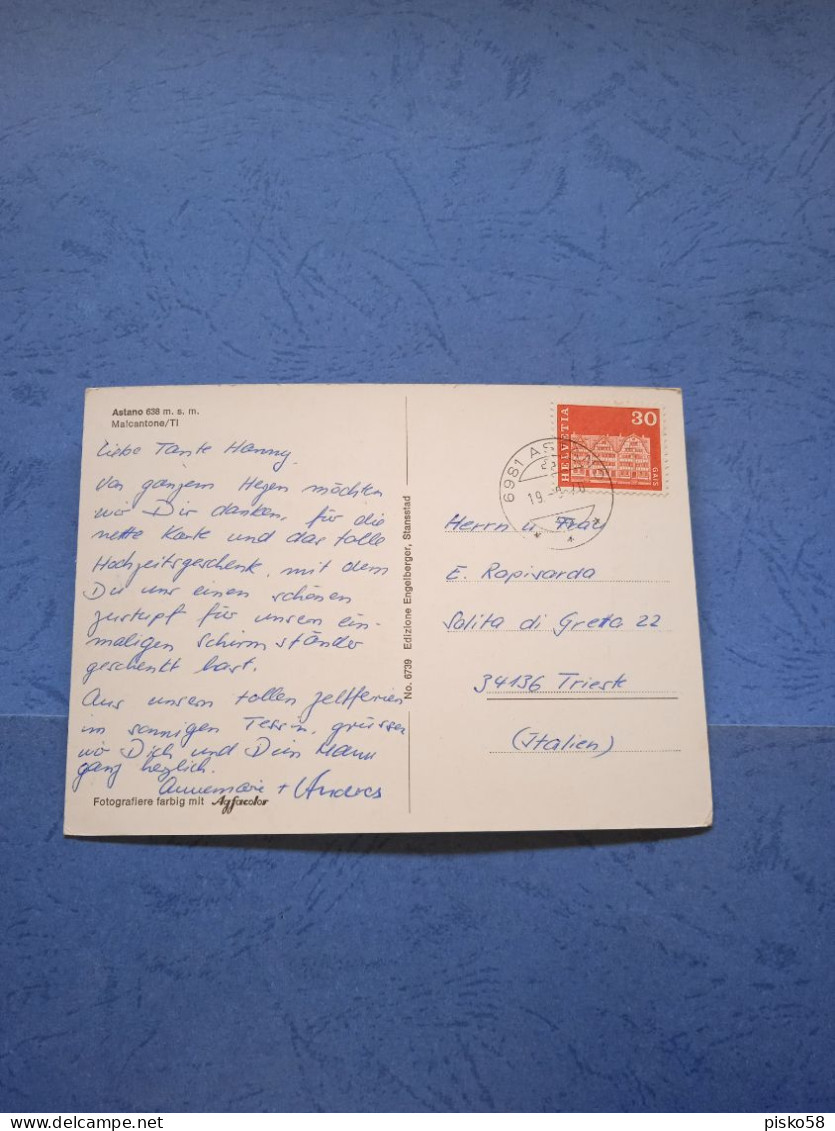 Astano 638 m. s. m.
Malcantone/TI
Liebe Tante Hanny.
Von ganzem Herzen möchten
wir Dir danken, für die
nette Karte und das tolle
Hochzeitsgeschenk, mit dem
Du uns einen schönen
zustupf für unsern ein-
maligen Schirmständer
geschenkt hast.
Aus unsern tollen Zeltferien
im sonnigen Tessin, grüssen
wir Dich und Dein Mann
ganz herzlich.
Annemarie + Andres
Fotografiere farbig mit Agfacolor
No. 6739 Edizione Engelberger, Stansstad
HELVETIA
30
GAIS
6981
19.
Herrn u. Frau
E. Rapisarda
Salita di Gretta 22
34136 Triest
(Italien)
delcampe.net
pisko58